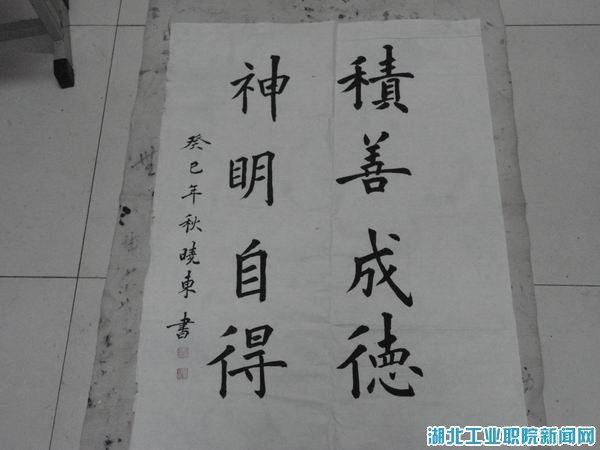 積善成德
神明自得
癸巳年秋曉東書
湖北工业职院新闻网